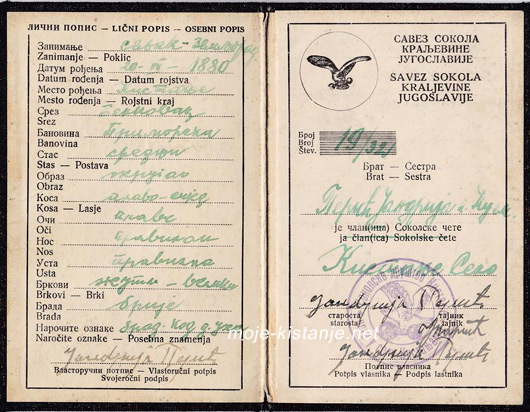 ЛИЧНИ ПОПИС — LIČNI POPIS — OSEBNI POPIS
Занимање
Zanimanje — Poklic
Датум рођења 20-VI-1880
Datum rođenja — Datum rojstva
Место рођења Кистање
Mesto rođenja — Rojstni kraj
Срез
Srez
Бановина Приморска
Banovina
Стас средњи
Stas — Postava
Образ
Obraz
Коса
Kosa — Lasje
Очи плаве
Oči
Нос правилан
Nos
Уста правилна
Usta
Бркови жути - велики
Brkovi — Brki
Брада брије
Brada
Нарочите ознаке
Naročite oznake — Posebna znamenja
Власторучни потпис — Vlastoručni potpis
Svojeročni podpis
САВЕЗ СОКОЛА
КРАЉЕВИНЕ
ЈУГОСЛАВИЈЕ
SAVEZ SOKOLA
KRALJEVINE
JUGOSLAVIJE
Број
Broj
Štev.
19/32
Брат — Сестра
Brat — Sestra
Перић
је члан(ица) Соколске чете
ja član(ica) Sokolske čete
Кистање Село
староста тајник
starosta tajnik
Потпис власника
Potpis vlasnika Podpis lastnika
moje-kistanje.net